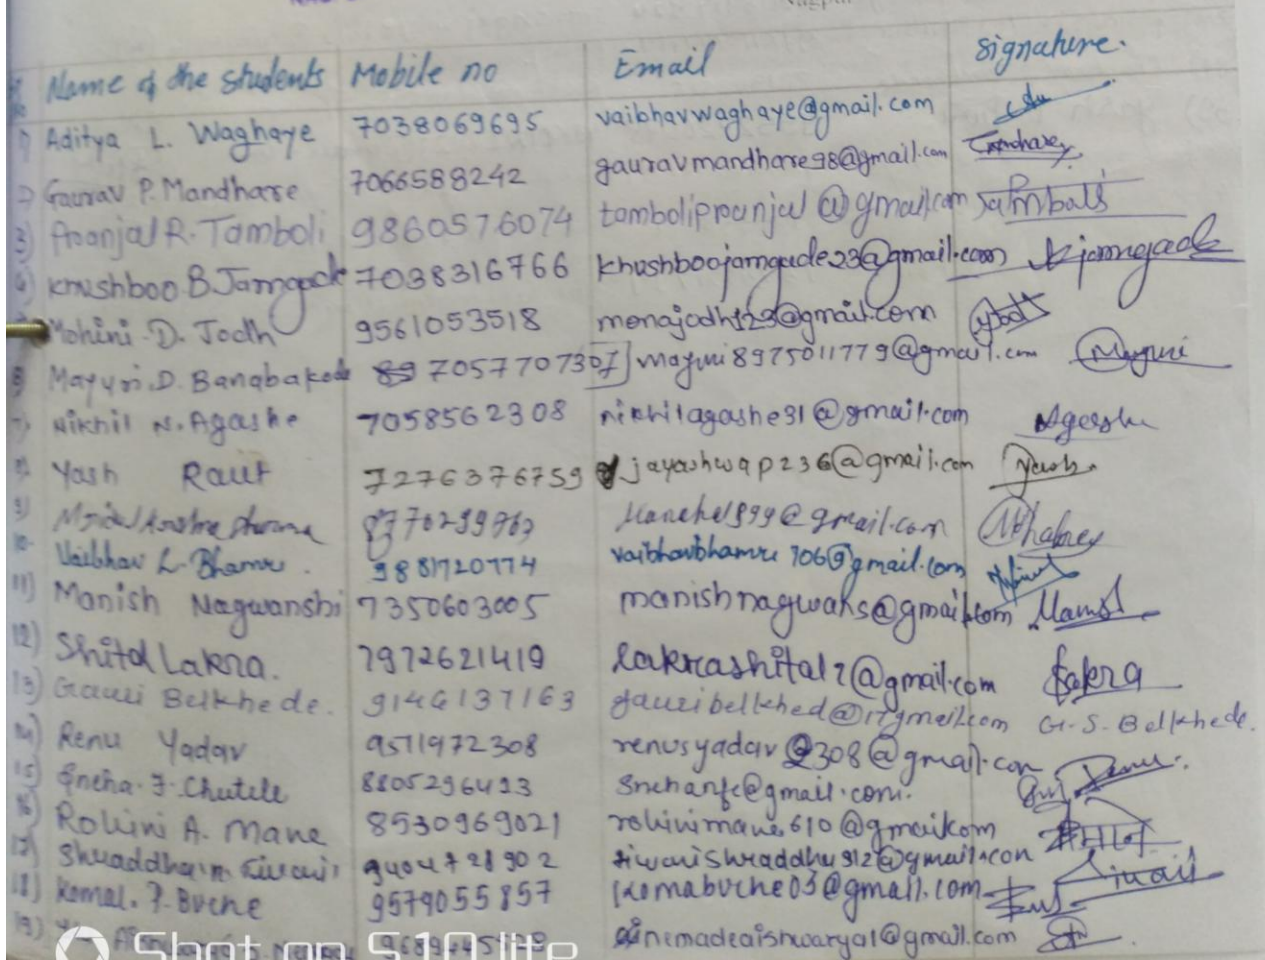 Name of the students Mobile no Email Signature.
1) Aditya L. Waghaye 7038069695 vaibhavwaghaye@gmail.com
2) Gaurav P. Mandhare 7066588242 gauravmandhare98@gmail.com
3) Pranjal R. Tamboli 9860576074 tambolipranjal@gmail.com
4) Khushboo B Jamgade 7038316766 khushboojamgade23@gmail.com Kjamgade
Mohini D. Jodh 9561053518 monajodh123@gmail.com
Mayuri D. 7057707307 mayuri8975011779@gmail.com Mayuri
7) Nikhil N. Agashe 7058562308 nikhilagashe31@gmail.com
Yash Raut 7276376759 jayashwap236@gmail.com Yash
9) @gmail.com
10. Vaibhav L. 9881720774 @gmail.com
11) Manish Nagwanshi 7350603005 manishnagwans@gmail.com
12) Shital Lakra. 7972621419 lakrashital2@gmail.com Lakra
13) Gauri Belkhede. 9146137163 gauribelkhed@17gmail.com G.S. Belkhede.
14) Renu Yadav 9511972308 renusyadav2308@gmail.com Renu.
15) Sneha. F. Chutele 8805296493 @gmail.com.
16) Rohini A. Mane 8530969021 rohinimane610@gmail.com
17) Shraddha Tiwari tiwarishraddha912@gmail.com Tiwari
18) Komal. P. Buche 9579055857 komabuche03@gmail.com
19) nemadeaishwarya1@gmail.com
Shot on S10 lite